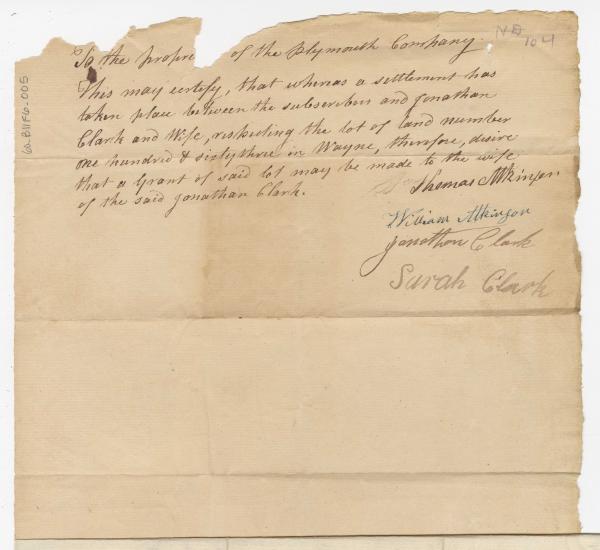 NB
104
6a.B11F6-005
To the proprie of the Plymouth Company.
This may certify, that whereas a settlement has
taken place between the subscribers and Jonathan
Clark and Wife, respecting the lot of land number
one hundred & sixtythree in Wayne, therefore, desire
that a Grant of said lot may be made to the wife
of the said Jonathan Clark.
Thomas Atkinson
William Atkinson
Jonathon Clark
Sarah Clark